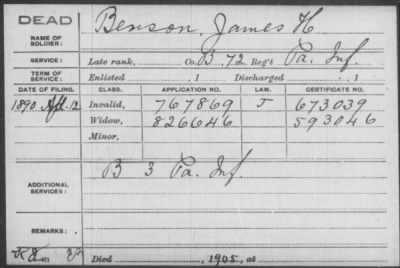 DEAD
NAME OF SOLDIER: Benson, James H
SERVICE: Late rank, Co. B. 72 Reg't Pa. Inf.
TERM OF SERVICE: Enlisted , 1 Discharged , 1
DATE OF FILING. CLASS. APPLICATION NO. LAW. CERTIFICATE NO.
1890 Apl. 12 Invalid, 767869 J 673039
Widow, 826646 593046
Minor,
ADDITIONAL SERVICES: B 3 Pa. Inf.
REMARKS:
Died , 1905, at